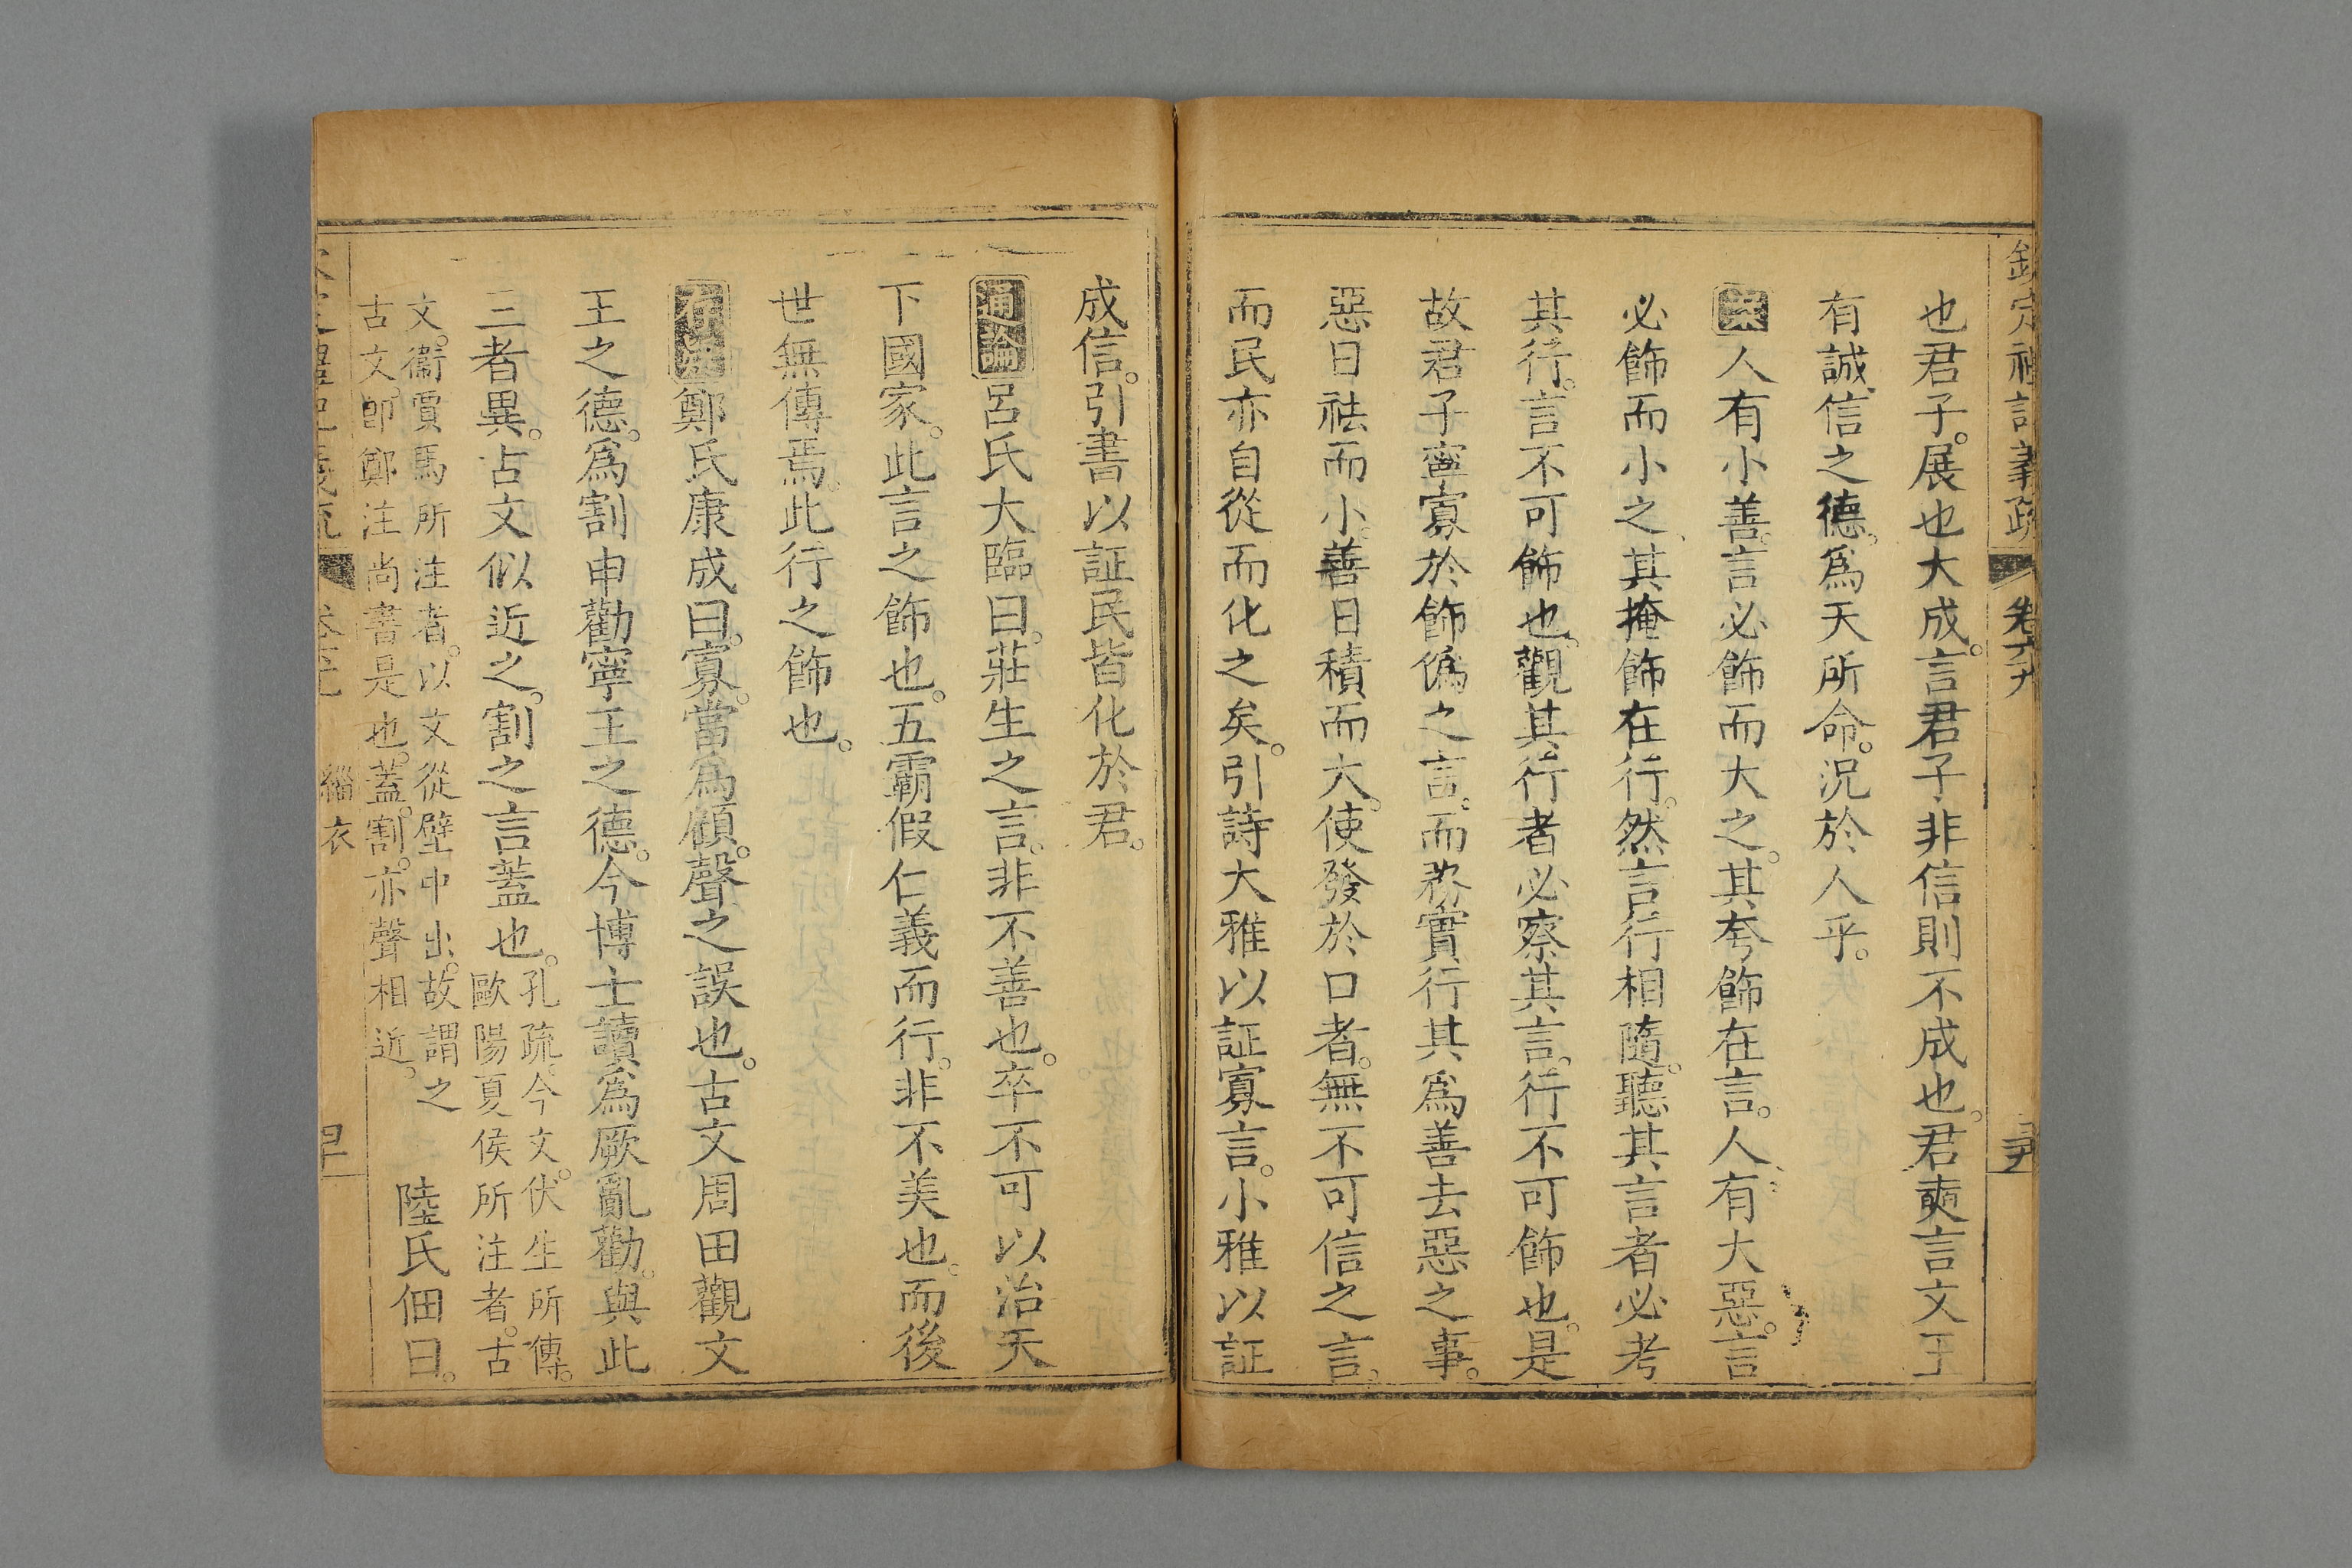 欽定禮記義疏 卷六九
也君子。展也大成。言君子非信則不成也。君奭言文王
有誠信之德。爲天所命。況於人乎。
案人有小善。言必飾而大之。其夸飾在言。人有大惡。言
必飾而小之。其掩飾在行。然言行相隨。聽其言者必考
其行。言不可飾也。觀其行者必察其言。行不可飾也。是
故君子寧寡於飾僞之言。而務實行其爲善去惡之事。
惡日祛而小。善日積而大。使發於口者。無不可信之言。
而民亦自從而化之矣。引詩大雅以証寡言。小雅以証
成信。引書以証民皆化於君。
通論呂氏大臨曰。莊生之言。非不善也。卒不可以治天
下國家。此言之飾也。五霸假仁義而行。非不美也。而後
世無傳焉。此行之飾也。
鄭氏康成曰。寡。當爲顧。聲之誤也。古文周田觀文
王之德。爲割申勸寧王之德。今博士讀爲厥亂勸。與此
三者異。古文似近之。割之言蓋也。
孔疏。今文。伏生所傳。
歐陽夏侯所注者。古
文。衞賈馬所注者。以文從壁中出。故謂之
古文。卽鄭注尚書是也。蓋。割。亦聲相近。
陸氏佃曰。
緇衣